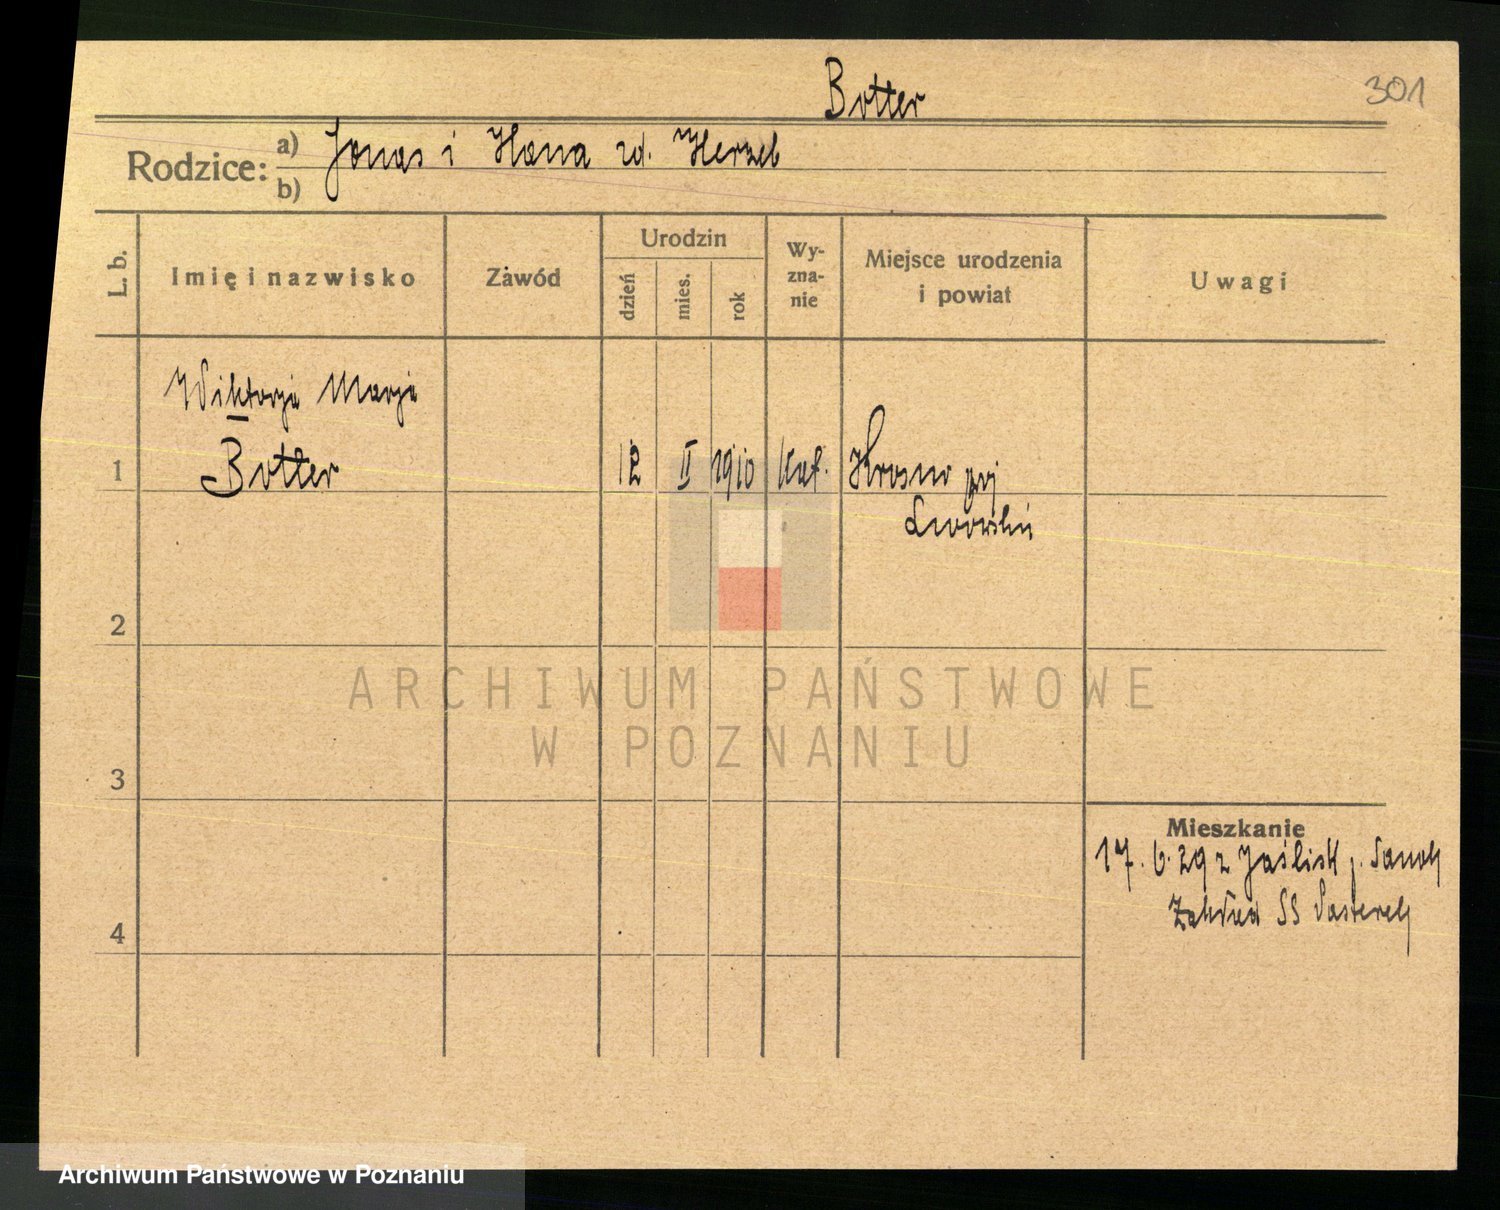 Botter
301
Rodzice:
a) Jonas i Hana zd. Herzeb
b)
L. b.
Imię i nazwisko
Zawód
Urodzin
dzień
mies.
rok
Wy-
zna-
nie
Miejsce urodzenia
i powiat
Uwagi
Wiktorja Marja
1 Botter 12 II 1910 Kat. Krosno
Lwowskie
2
3
4
Mieszkanie
17. 6. 29 z Jaślisk p. Sanok
Zakład SS Pasterek
ARCHIWUM PAŃSTWOWE
W POZNANIU
Archiwum Państwowe w Poznaniu